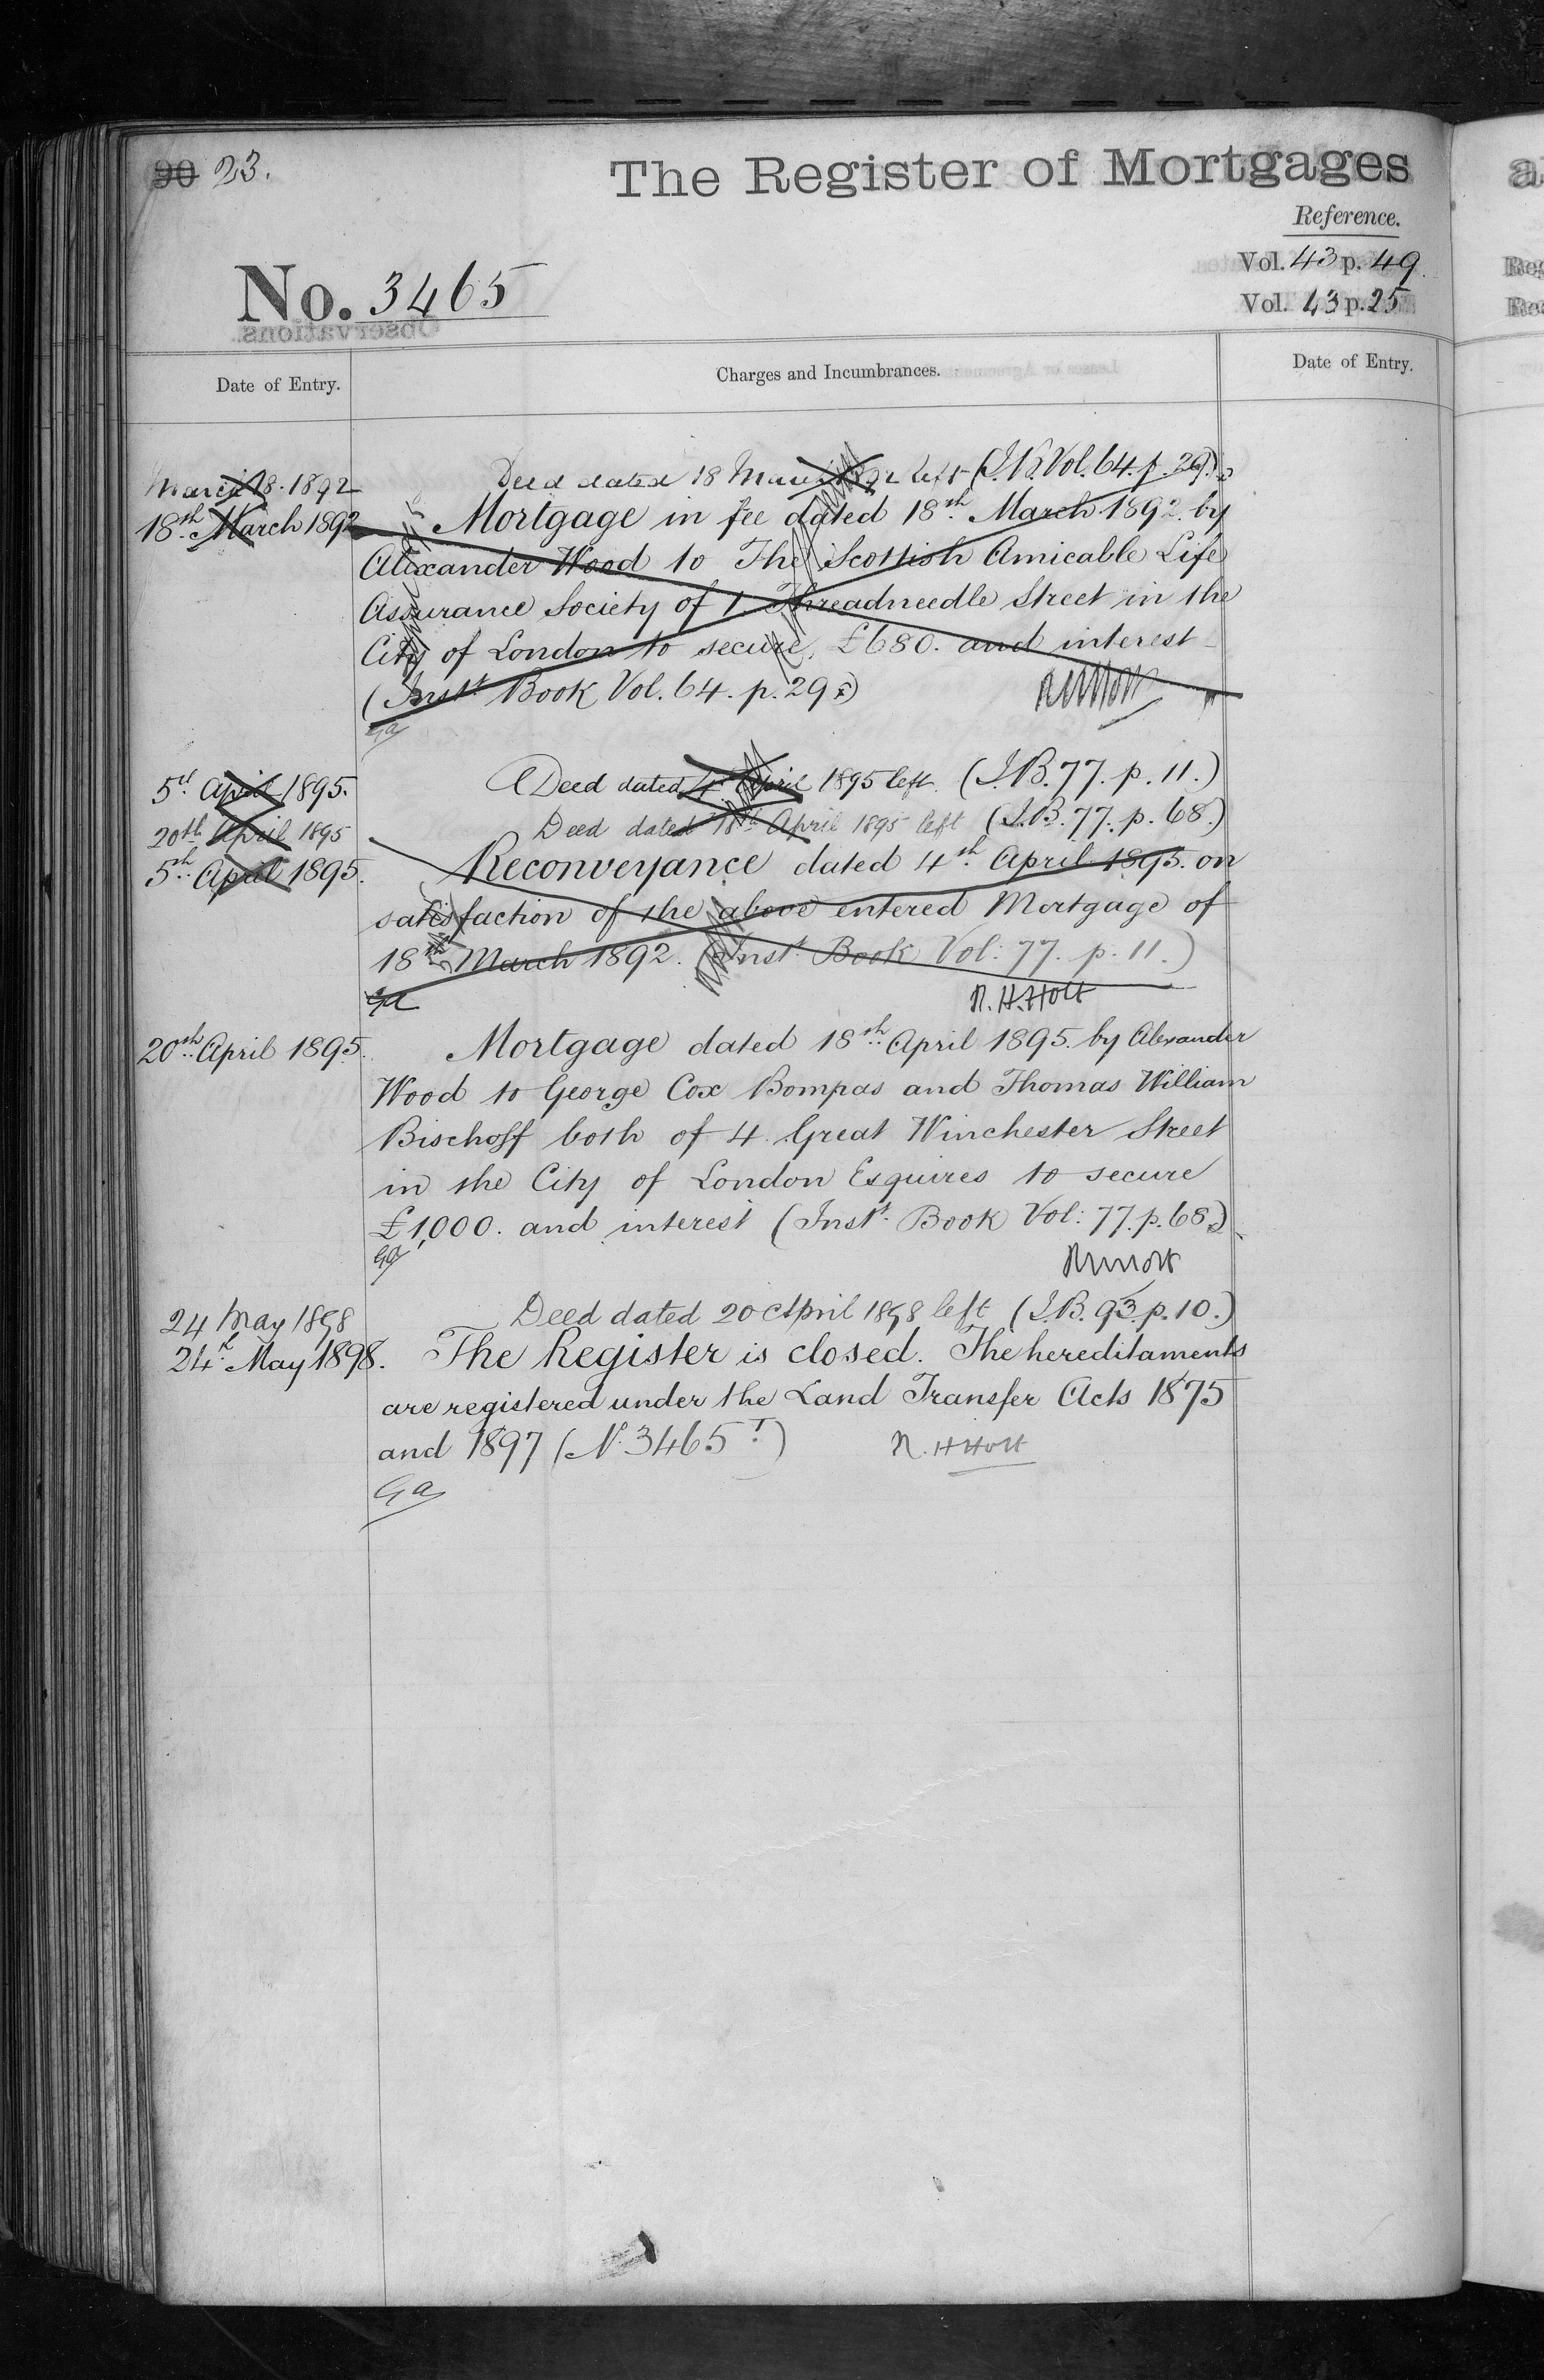 90 23.
The Register of Mortgages
Reference.
Vol. 43 p. 49.
No. 3465
Vol. 43 p. 25
Date of Entry.
Charges and Incumbrances.
Date of Entry.
March 18. 1892
Deed dated 18 March 1892 left (I.B. Vol. 64. p. 29.)
18th. March 1892
Mortgage in fee dated 18th. March 1892. by
Alexander Wood to The Scottish Amicable Life
Assurance Society of 1. Threadneedle Street in the
City of London to secure, £680. and interest
(Inst. Book Vol. 64. p. 29.)
Ga
5th. April 1895.
Deed dated 4th April 1895 left. (I.B. 77. p. 11.)
20th April 1895
Deed dated 18th April 1895 left (I.B. 77. p. 68.)
5th. April 1895.
Reconveyance dated 4th. April 1895. on
satisfaction of the above entered Mortgage of
18th March 1892. (Inst. Book Vol: 77. p. 11.)
Ga
R. H. Holt
20th. April 1895.
Mortgage dated 18th. April 1895. by Alexander
Wood to George Cox Bompas and Thomas William
Bischoff both of 4. Great Winchester Street
in the City of London Esquires to secure
£1,000. and interest (Inst. Book Vol: 77. p. 68.)
Ga
24 May 1898
Deed dated 20 April 1898 left (I.B. 93. p. 10.)
24th. May 1898.
The Register is closed. The hereditaments
are registered under the Land Transfer Acts 1875
and 1897 (No. 3465T.)
R. H Holt
Ga